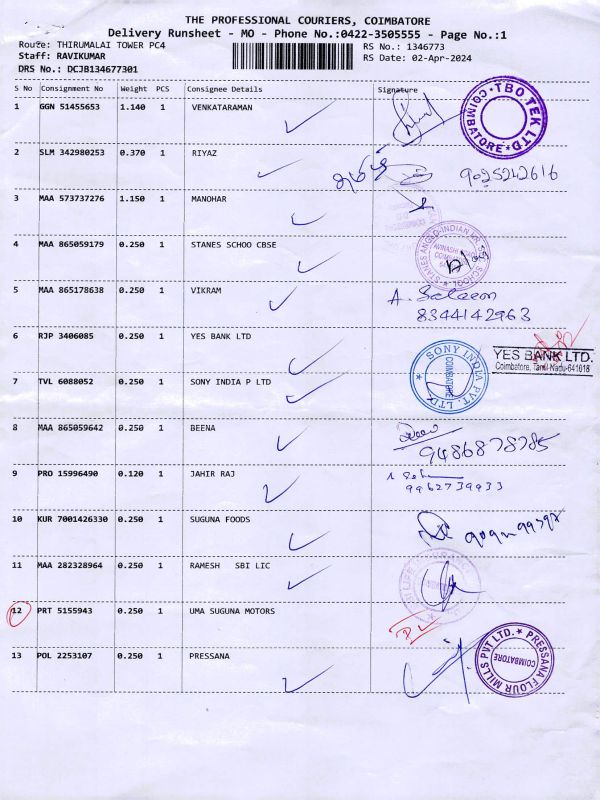 THE PROFESSIONAL COURIERS, COIMBATORE
Delivery Runsheet - MO - Phone No.:0422-3505555 - Page No.:1
Route: THIRUMALAI TOWER PC4 RS No.: 1346773
Staff: RAVIKUMAR RS Date: 02-Apr-2024
DRS No.: DCJB134677301
S No Consignment No Weight PCS Consignee Details Signature
1 GGN 51455653 1.140 1 VENKATARAMAN
TBO TEK LTD * COIMBATORE *
2 SLM 342980253 0.370 1 RIYAZ 9025242616
3 MAA 573737276 1.150 1 MANOHAR
4 MAA 865059179 0.250 1 STANES SCHOO CBSE
STANES ANGLO-INDIAN HR SEC SCHOOL
5 MAA 865178638 0.250 1 VIKRAM
8344142963
6 RJP 3406085 0.250 1 YES BANK LTD
YES BANK LTD.
Coimbatore, Tamil-Nadu-641018
7 TVL 6088052 0.250 1 SONY INDIA P LTD
* SONY INDIA PVT. LTD. COIMBATORE
8 MAA 865059642 0.250 1 BEENA
9486878785
9 PRO 15996490 0.120 1 JAHIR RAJ
9962739933
10 KUR 7001426330 0.250 1 SUGUNA FOODS
11 MAA 282328964 0.250 1 RAMESH SBI LIC
12 PRT 5155943 0.250 1 UMA SUGUNA MOTORS
13 POL 2253107 0.250 1 PRESSANA
* PRESSANA FLOUR MILLS PVT LTD. * COIMBATORE